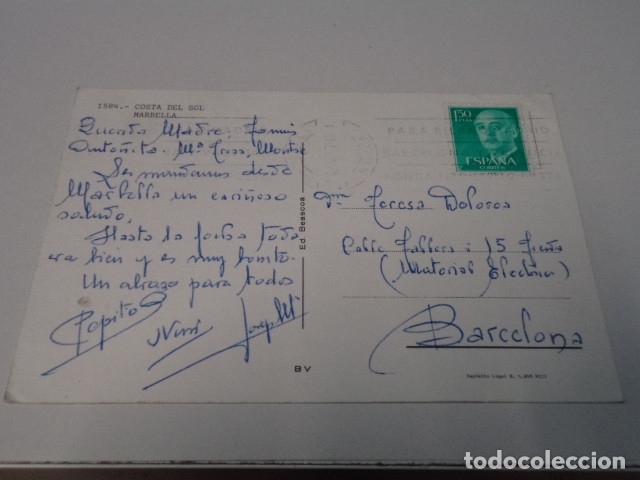 1584.- COSTA DEL SOL
MARBELLA
Querida Madre,
Antoñito, Mª Teresa, Montse
Les mandamos desde
Marbella un cariñoso
saludo.
Hasta la fecha todo
va bien y es muy bonito.
Un abrazo para todos
Pepito
Nuri
Josep Mª
Ed. Beascoa
B V
1,50
PTAS
ESPAÑA
CORREOS
Teresa Dolorosa
15
(Material Electrico)
Barcelona
Depósito Legal B.
todocoleccion.net